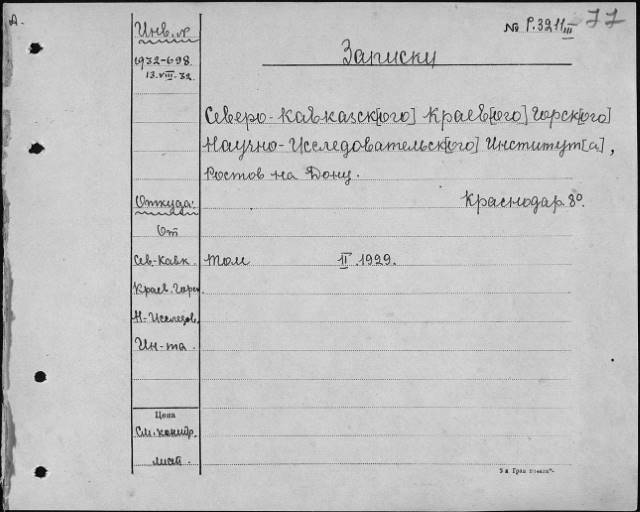 А.
№ Р.3211 III 77
Инв. №
1932-698
13.VIII.32.
Записки
Северо-Кавказск[ого] Краев[ого] Горск[ого]
Научно-Исследовательск[ого] Институт[а],
Ростов на Дону.
Откуда:
Краснодар 8º.
От
Сев-Кавк.
Том II.1929.
Краев. Горск.
Н-Исследов.
Ин-та.
Цена
См. контр.
лист.